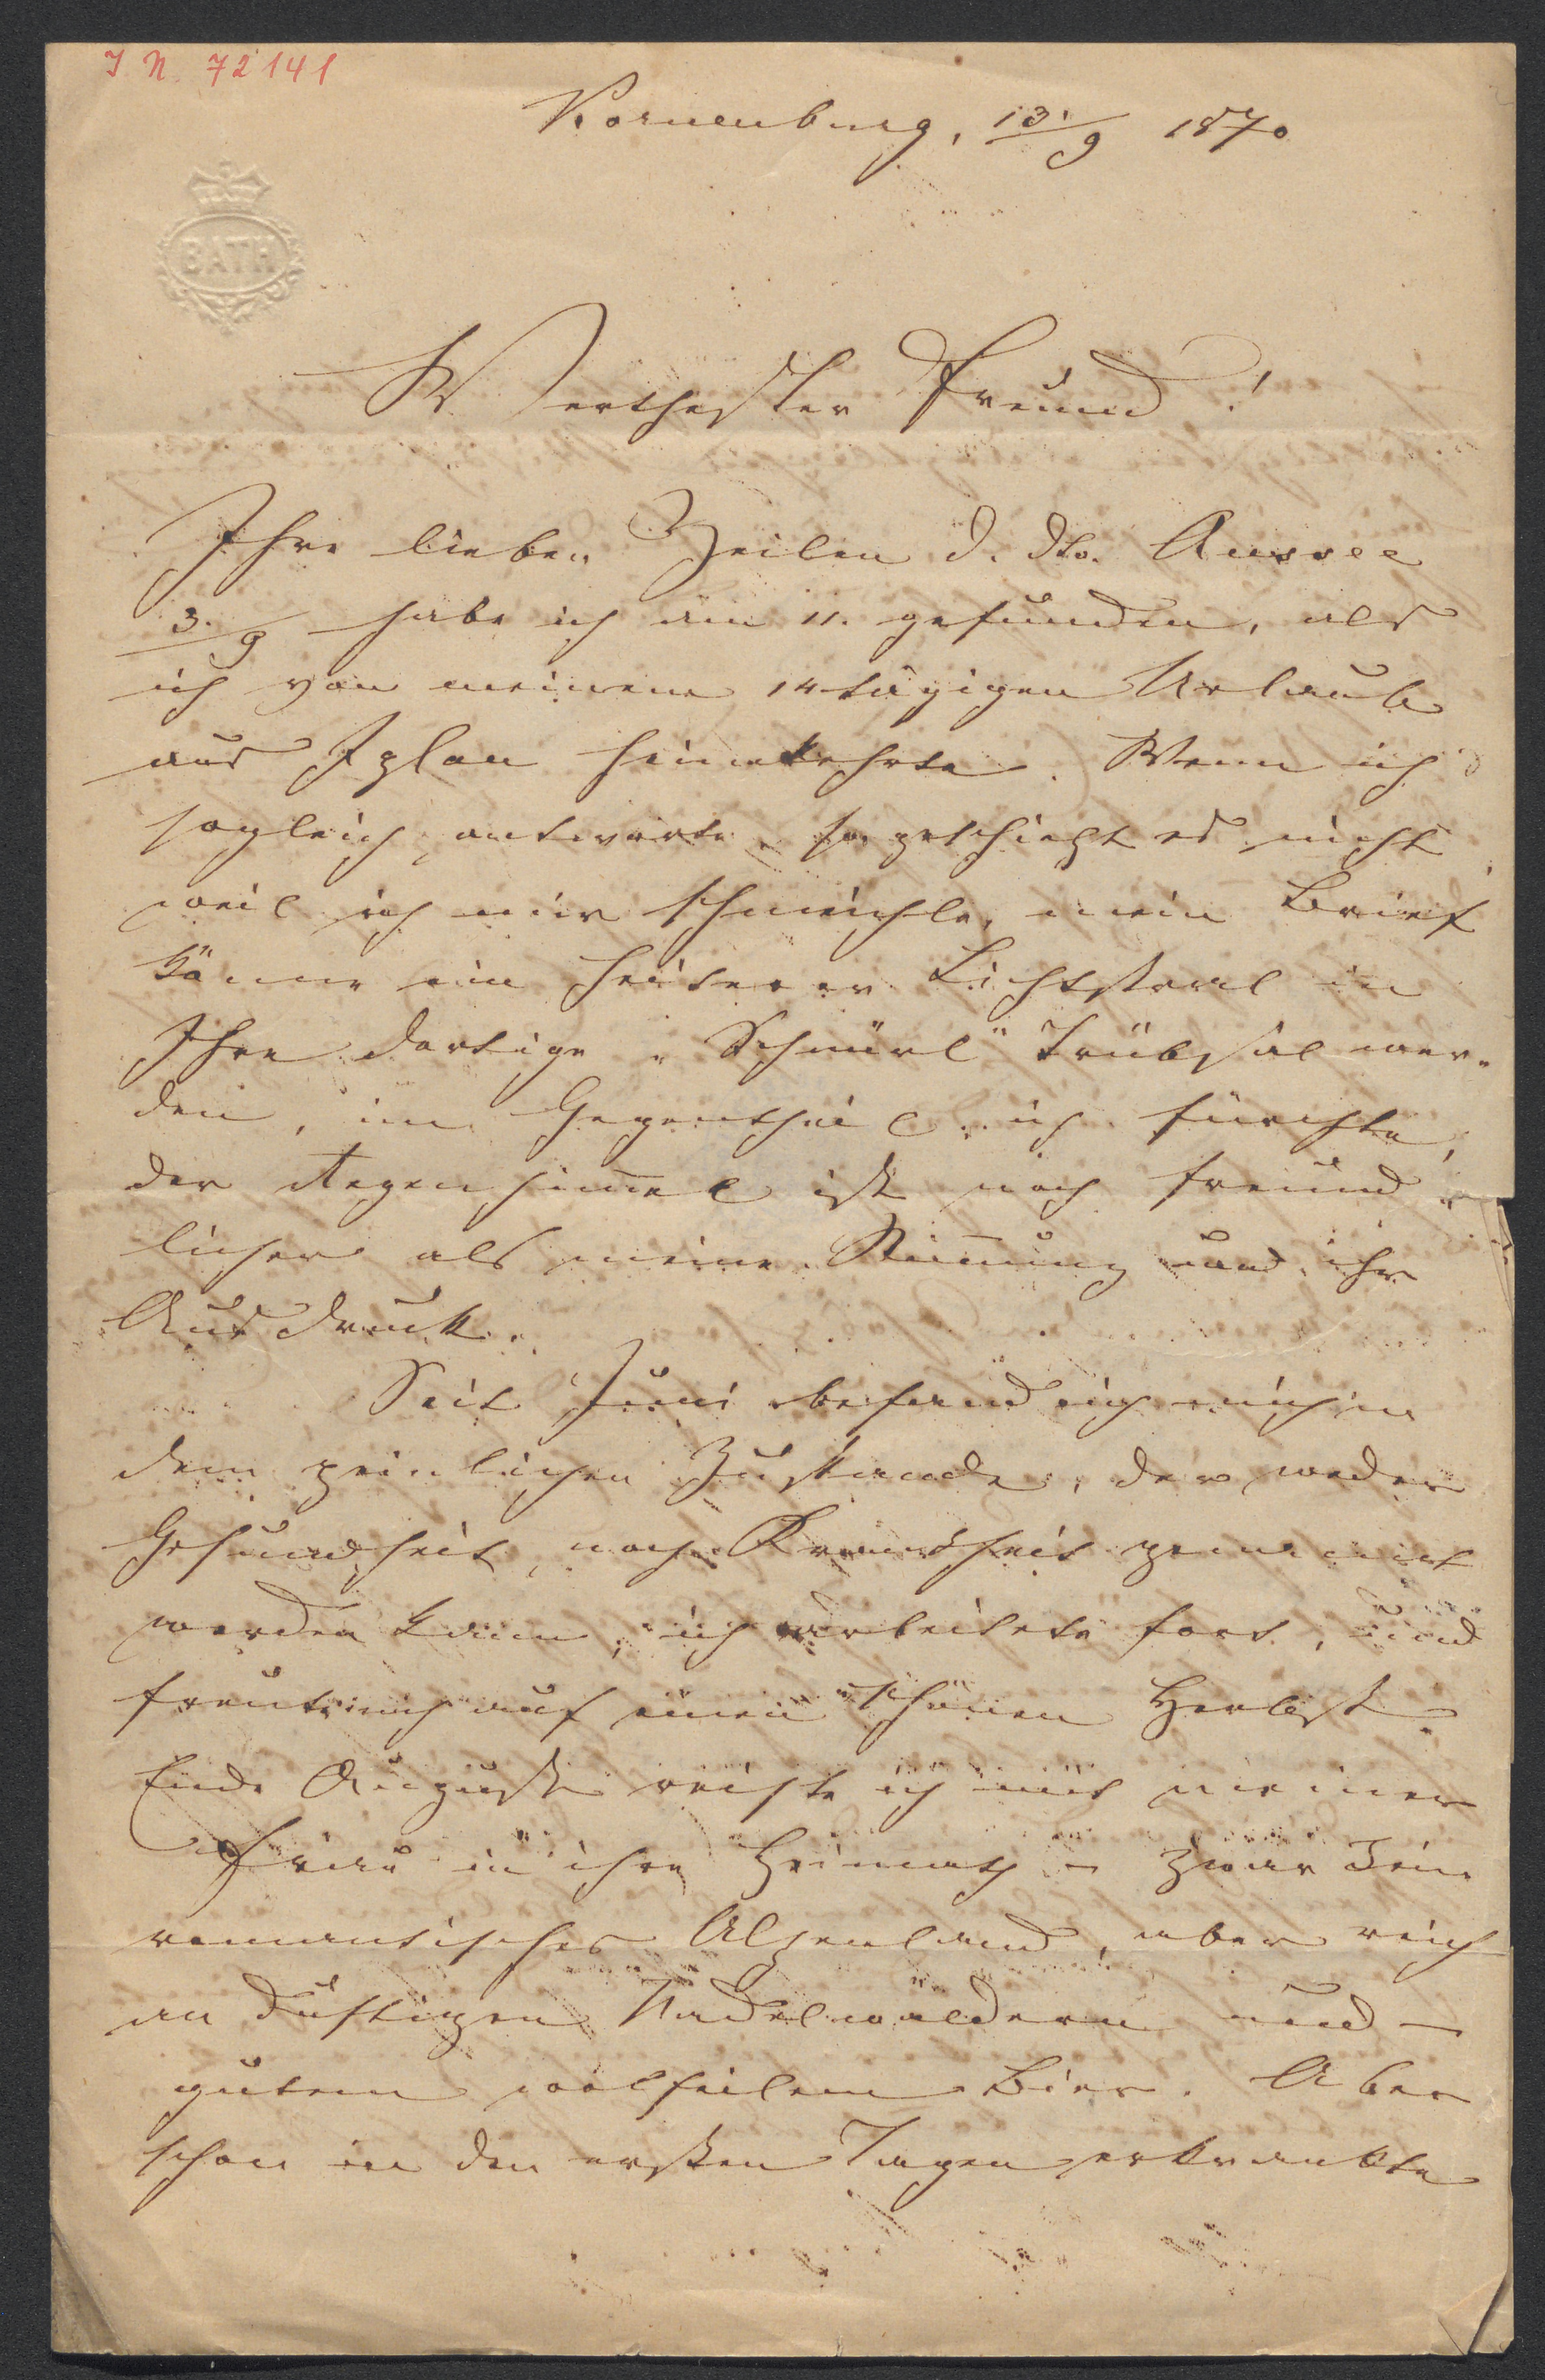 I N. 72141
Kornenburg, 13./9 1870
BATH
Werthester Freund!
Ihre lieben Zeilen d. dto. Aussee
3./9 habe ich am 11. gefunden, als
ich von meinem 14tägigen Urlaub
aus Iglau heimkehrte. Wenn ich
sogleich antworte, so geschieht es nicht
weil ich mir schmeichle, mein Brief
könne ein heiterer Lichtstral in
Ihre dortige „Schnürl" Trübsal wer-
den, im Gegentheil ich fürchte,
der Regenhim̄el ist noch freund-
licher als meine Stim̄ung und ihr
Ausdruck.
Seit Juni befand ich mich in
dem peinlichen Zustande, der weder
Gesundheit, noch Krankheit genannt
werden kann; ich arbeitete fort, und
freute mich auf einen schönen Herbst.
Ende August reiste ich mit meiner
Frau in ihre Heimath – zwar kein
romantisches Alpenland, aber reich
an duftigen Nadelwäldern und –
gutem wolfeilem Bier. Aber
schon in den ersten Tagen erkrankte